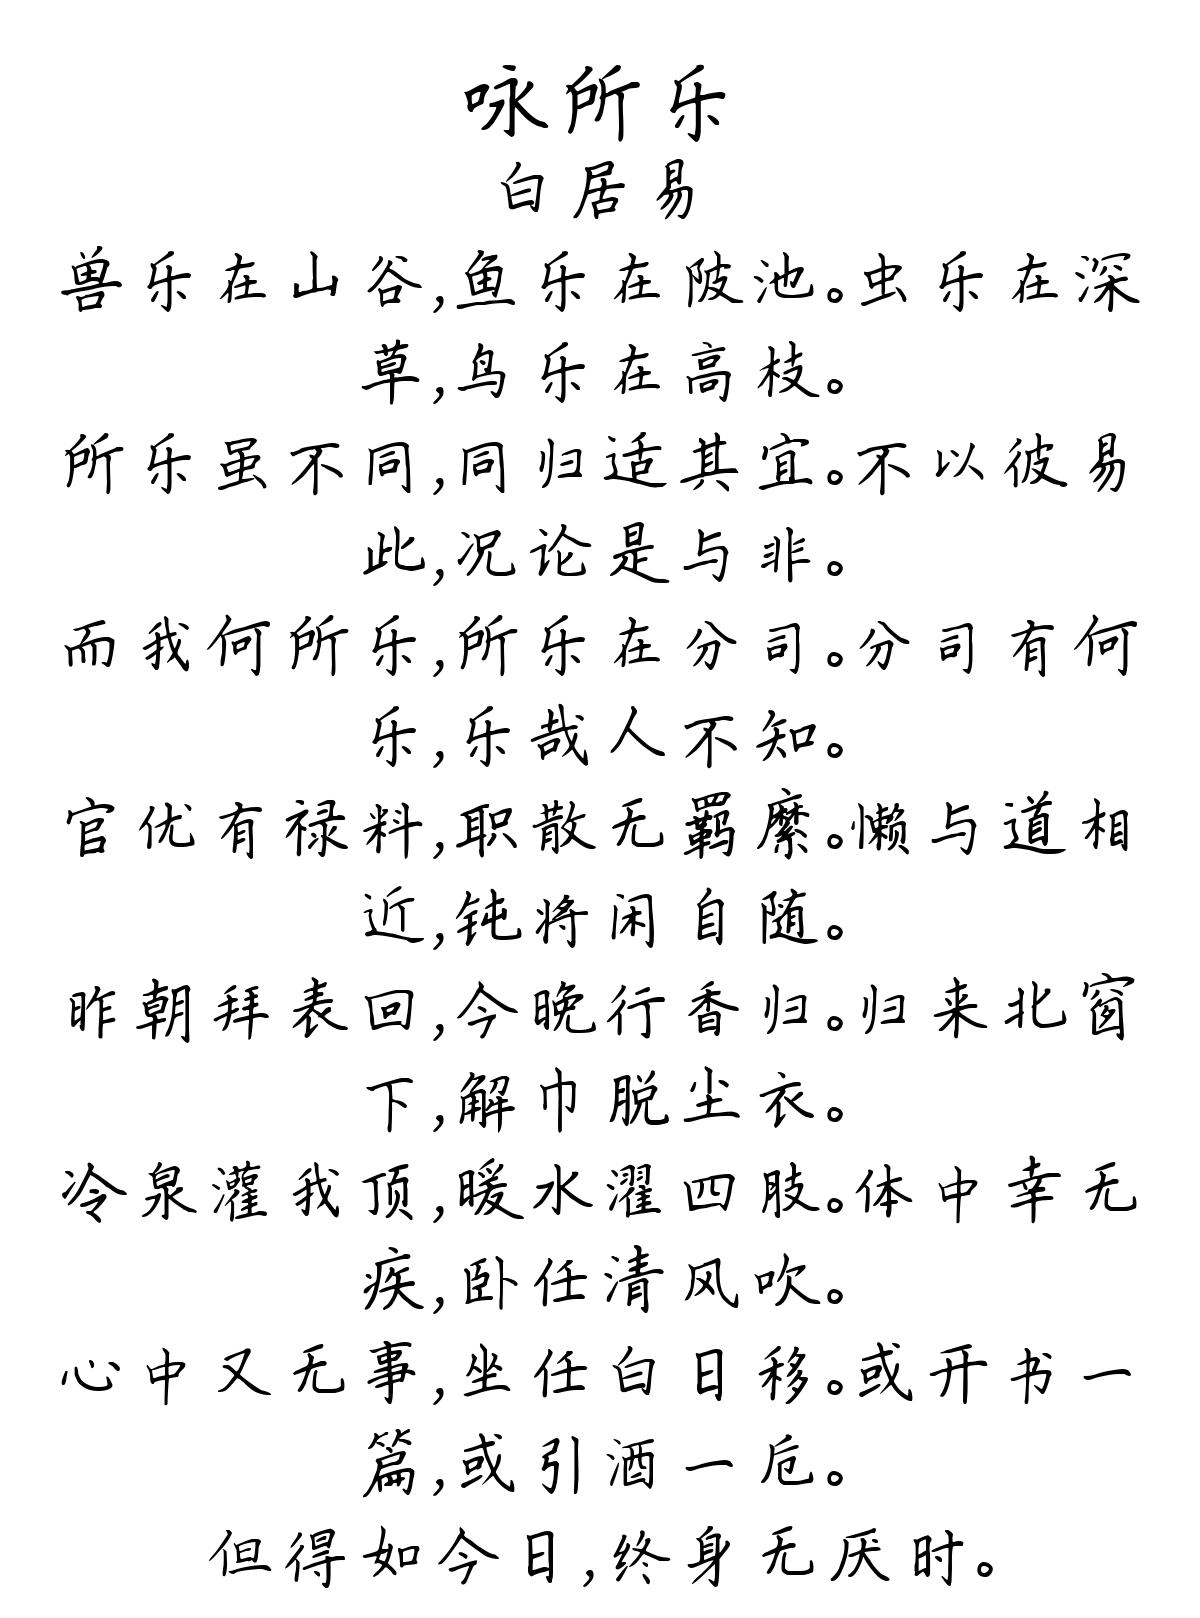 咏所乐
白居易
兽乐在山谷,鱼乐在陂池。虫乐在深
草,鸟乐在高枝。
所乐虽不同,同归适其宜。不以彼易
此,况论是与非。
而我何所乐,所乐在分司。分司有何
乐,乐哉人不知。
官优有禄料,职散无羁縻。懒与道相
近,钝将闲自随。
昨朝拜表回,今晚行香归。归来北窗
下,解巾脱尘衣。
冷泉灌我顶,暖水濯四肢。体中幸无
疾,卧任清风吹。
心中又无事,坐任白日移。或开书一
篇,或引酒一卮。
但得如今日,终身无厌时。